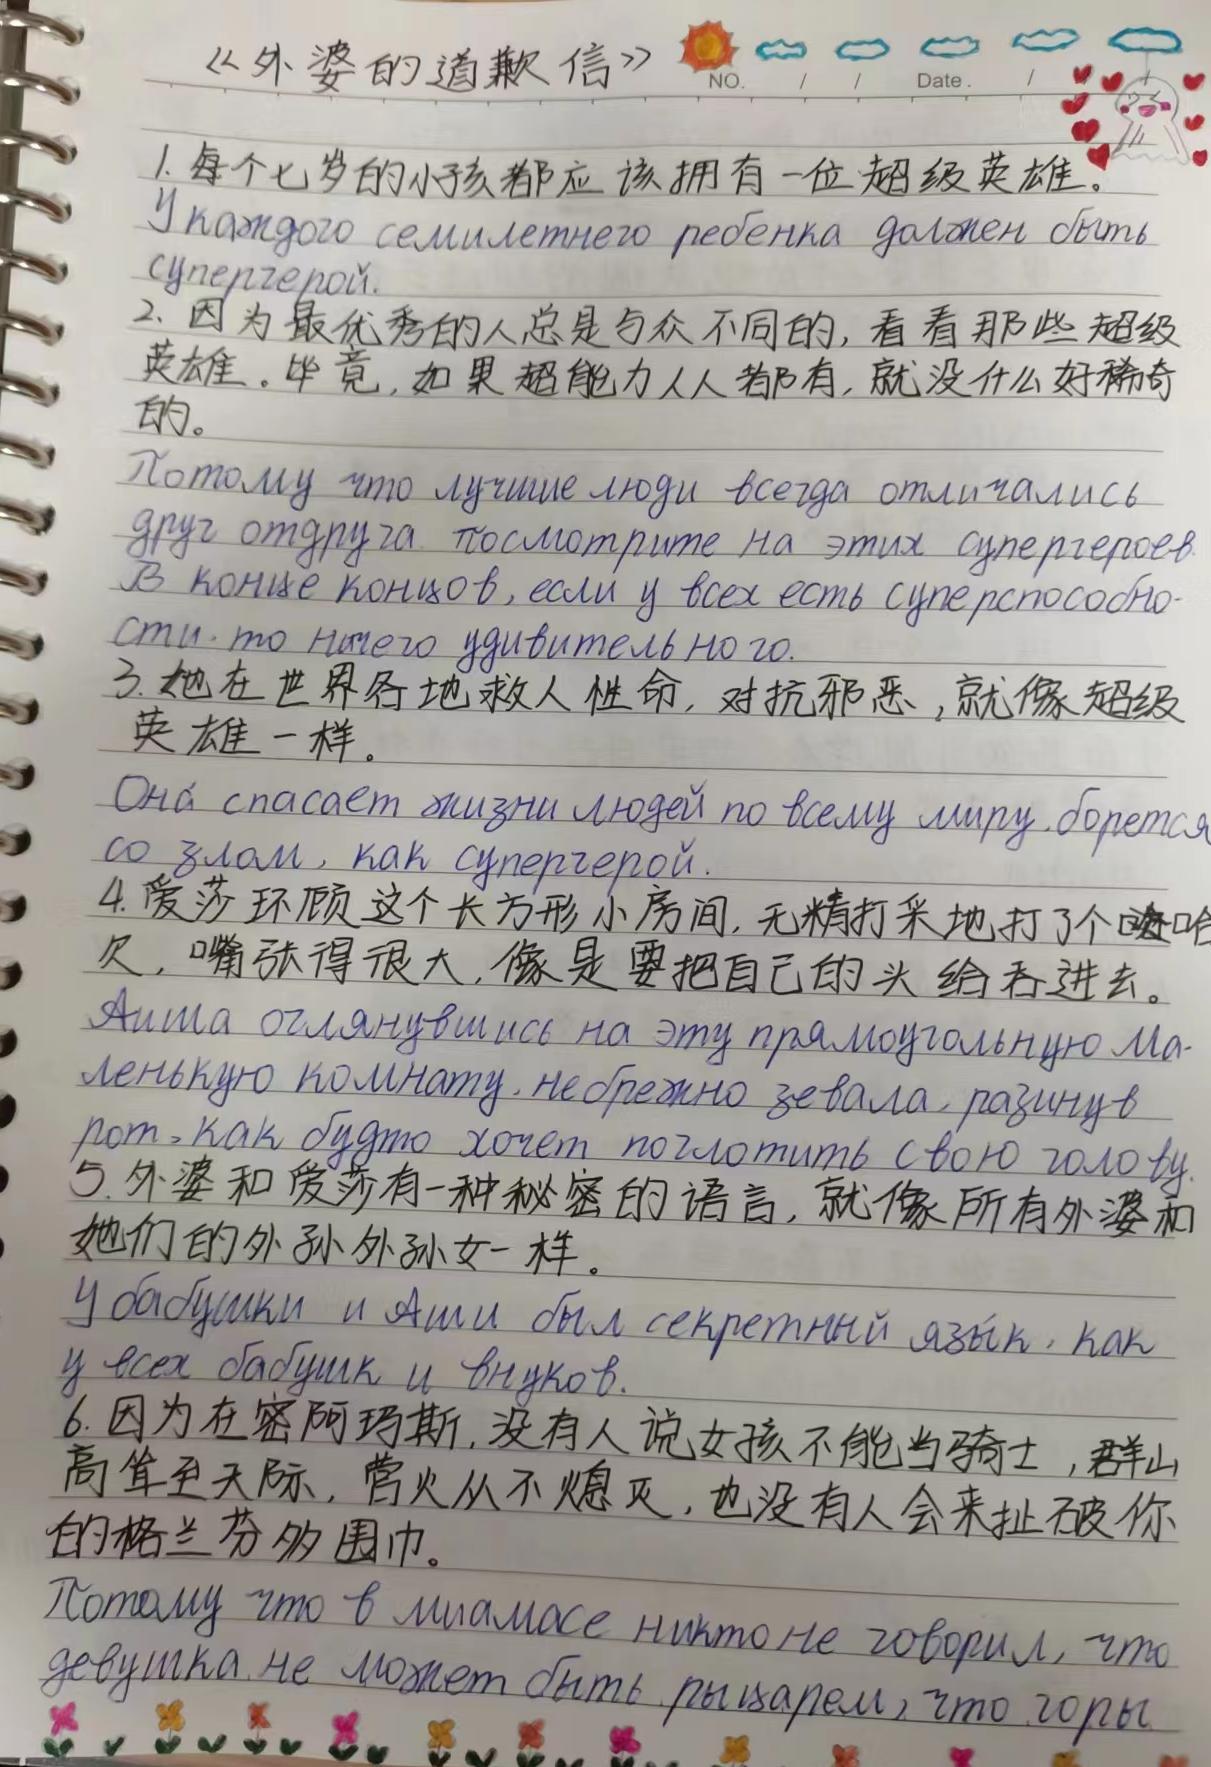 《外婆的道歉信》
NO. / / Date. / /
1. 每个七岁的小孩都应该拥有一位超级英雄。
У каждого семилетнего ребенка должен быть
супергерой.
2. 因为最优秀的人总是与众不同的, 看看那些超级
英雄。毕竟, 如果超能力人人都有, 就没什么好稀奇
的。
Потому что лучшие люди всегда отличались
друг отдруга. посмотрите на этих супергероев.
В конце концов, если у всех есть суперспособно-
сти. то ничего удивительного.
3. 她在世界各地救人性命, 对抗邪恶, 就像超级
英雄一样。
Она́ спасает жизни людей по всему миру. борется
со злом, как супергерой.
4. 爱莎环顾这个长方形小房间, 无精打采地打了个哈
欠, 嘴张得很大, 像是要把自己的头给吞进去。
Аиша оглянувшись на эту прямоугольную ма-
ленькую комнату. небрежно зевала. разинув
рот, как будто хочет поглотить свою голову.
5. 外婆和爱莎有一种秘密的语言, 就像所有外婆和
她们的外孙外孙女一样。
У бабушки и Аши был секретный язы́к. как
у всех бабушк и внуков.
6. 因为在密阿玛斯, 没有人说女孩不能当骑士, 群山
高耸至天际, 营火从不熄灭, 也没有人会来扯破你
的格兰芬多围巾。
Потому что в миамасе никто не говорил, что
девушка не может быть рыцарем, что горы